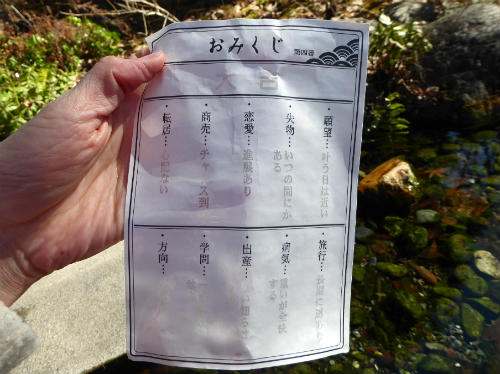 おみくじ
第四番
大吉
・願望…叶う日は近い
・失物…いつの間にか
ある
・恋愛…進展あり
・商売…チャンス到
・転居…心配ない
・旅行…
・病気…重いが全快
する
・出産…
・学問…
・方向…